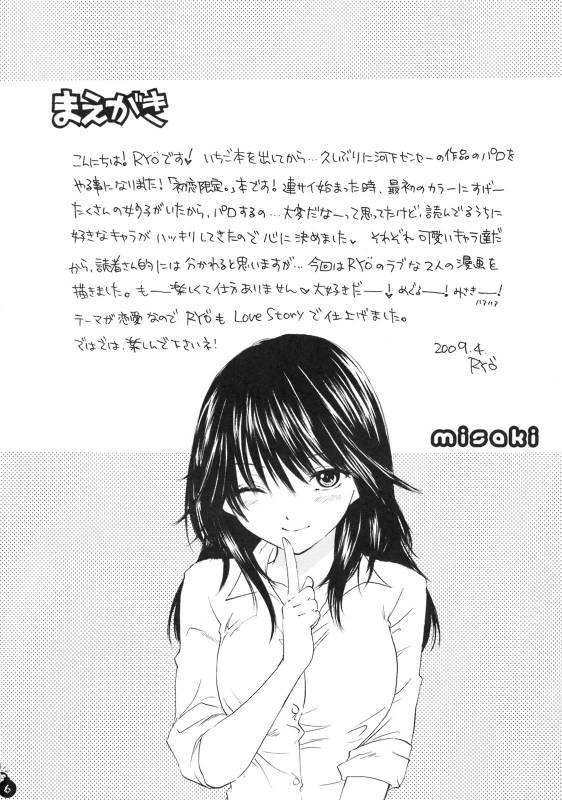 まえがき
こんにちは！RYöです♥ いちご本を出してから…久しぶりに河下センセーの作品のパロを
やる事になりました！「初恋限定。」本です！連サイ始まった時、最初のカラーにすげー
たくさんの女の子がいたから、パロするの…大変だなーって思ってたけど、読んでるうちに
好きなキャラがハッキリしてきたので心に決めました♥ それぞれ可愛いキャラ達だ
から、読者さん的には分かれると思いますが…今回はRYöのラブな2人の漫画を
描きました。もー楽しくて仕方ありません♡大好きだー！めぐるー！みさきー！
ハァハァ
テーマが恋愛なのでRYöもLove Storyで仕上げました。
ではでは、楽しんで下さいネ！
2009.4.
RYö
misaki
6